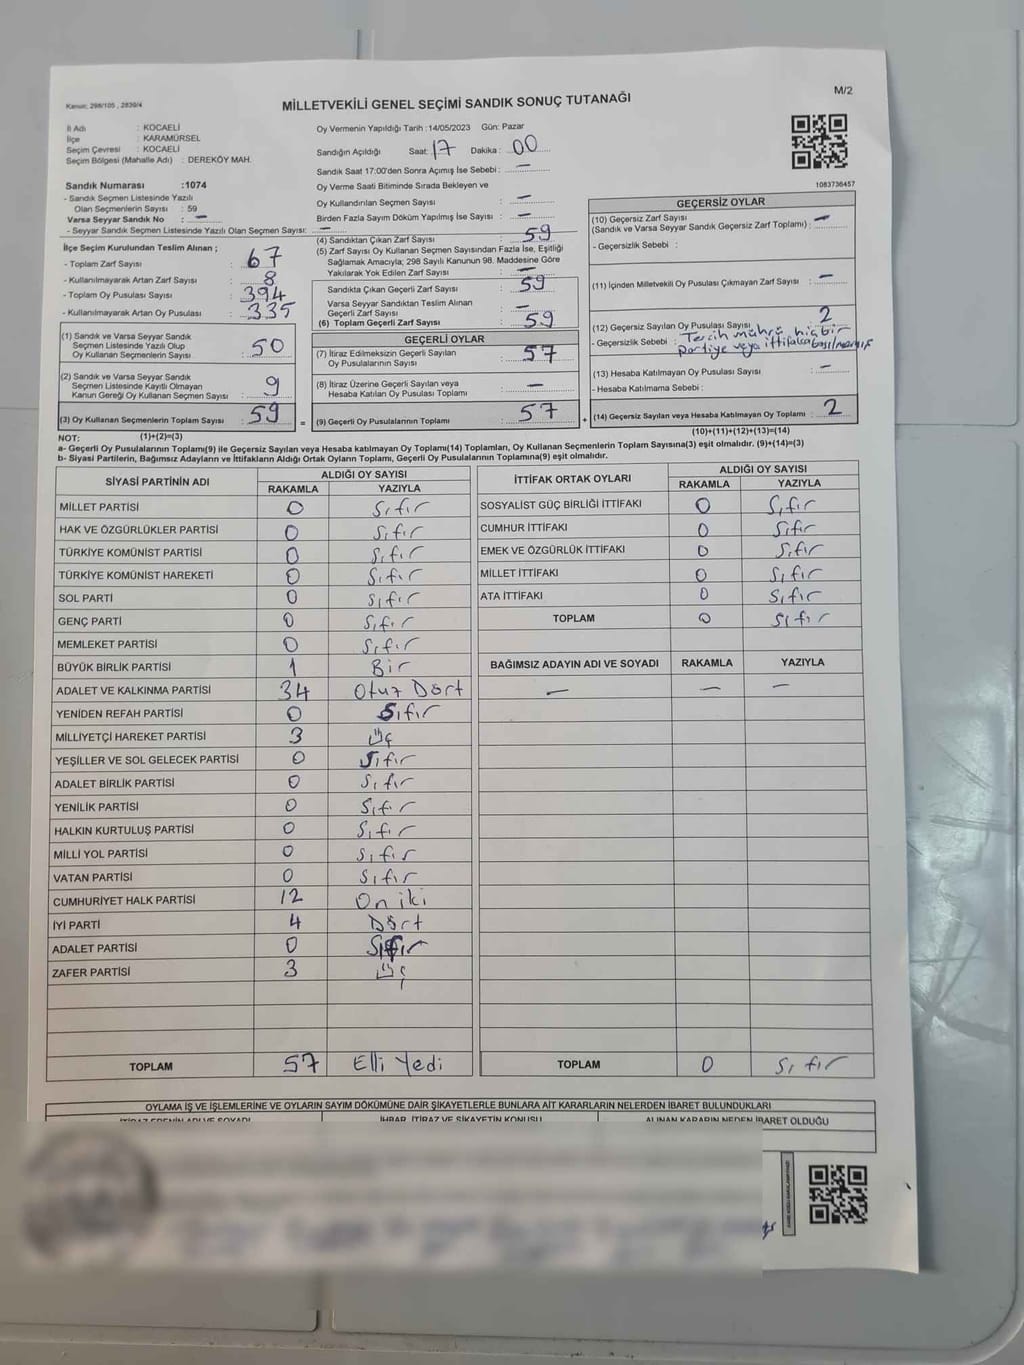 Kanun: 298/105 , 2839/4
MİLLETVEKİLİ GENEL SEÇİMİ SANDIK SONUÇ TUTANAĞI
M/2
İl Adı : KOCAELİ
İlçe : KARAMÜRSEL
Seçim Çevresi : KOCAELİ
Seçim Bölgesi (Mahalle Adı) : DEREKÖY MAH.
Sandık Numarası :1074
- Sandık Seçmen Listesinde Yazılı
Olan Seçmenlerin Sayısı : 59
Varsa Seyyar Sandık No : —
- Seyyar Sandık Seçmen Listesinde Yazılı Olan Seçmen Sayısı: —
İlçe Seçim Kurulundan Teslim Alınan ;
- Toplam Zarf Sayısı : 67
- Kullanılmayarak Artan Zarf Sayısı : 8
- Toplam Oy Pusulası Sayısı : 394
- Kullanılmayarak Artan Oy Pusulası : 335
(1) Sandık ve Varsa Seyyar Sandık
Seçmen Listesinde Yazılı Olup
Oy Kullanan Seçmenlerin Sayısı : 50
(2) Sandık ve Varsa Seyyar Sandık
Seçmen Listesinde Kayıtlı Olmayan
Kanun Gereği Oy Kullanan Seçmen Sayısı : 9
(3) Oy Kullanan Seçmenlerin Toplam Sayısı : 59
Oy Vermenin Yapıldığı Tarih :14/05/2023 Gün: Pazar
Sandığın Açıldığı Saat: 17 Dakika : 00
Sandık Saat 17:00'den Sonra Açımış İse Sebebi : —
Oy Verme Saati Bitiminde Sırada Bekleyen ve
Oy Kullandırılan Seçmen Sayısı : —
Birden Fazla Sayım Döküm Yapılmış İse Sayısı : —
(4) Sandıktan Çıkan Zarf Sayısı : 59
(5) Zarf Sayısı Oy Kullanan Seçmen Sayısından Fazla İse, Eşitliği
Sağlamak Amacıyla; 298 Sayılı Kanunun 98. Maddesine Göre
Yakılarak Yok Edilen Zarf Sayısı : —
Sandıkta Çıkan Geçerli Zarf Sayısı : 59
Varsa Seyyar Sandıktan Teslim Alınan
Geçerli Zarf Sayısı : —
(6) Toplam Geçerli Zarf Sayısı : 59
GEÇERLİ OYLAR
(7) İtiraz Edilmeksizin Geçerli Sayılan
Oy Pusulalarının Sayısı : 57
(8) İtiraz Üzerine Geçerli Sayılan veya
Hesaba Katılan Oy Pusulası Toplamı : —
= (9) Geçerli Oy Pusulalarının Toplamı : 57 +
1083736457
GEÇERSİZ OYLAR
(10) Geçersiz Zarf Sayısı
(Sandık ve Varsa Seyyar Sandık Geçersiz Zarf Toplamı) : —
- Geçersizlik Sebebi :
(11) İçinden Milletvekili Oy Pusulası Çıkmayan Zarf Sayısı : —
(12) Geçersiz Sayılan Oy Pusulası Sayısı : 2
- Geçersizlik Sebebi : Tercih mührü hiçbir
partiye veya ittifaka basılmamış
(13) Hesaba Katılmayan Oy Pusulası Sayısı : —
- Hesaba Katılmama Sebebi :
(14) Geçersiz Sayılan veya Hesaba Katılmayan Oy Toplamı : 2
NOT: (1)+(2)=(3) (10)+(11)+(12)+(13)=(14)
a- Geçerli Oy Pusulalarının Toplamı(9) ile Geçersiz Sayılan veya Hesaba katılmayan Oy Toplamı(14) Toplamları, Oy Kullanan Seçmenlerin Toplam Sayısına(3) eşit olmalıdır. (9)+(14)=(3)
b- Siyasi Partilerin, Bağımsız Adayların ve İttifakların Aldığı Oyların Toplamı, Geçerli Oy Pusulalarının Toplamına(9) eşit olmalıdır.
SİYASİ PARTİNİN ADI ALDIĞI OY SAYISI
RAKAMLA YAZIYLA
MİLLET PARTİSİ 0 Sıfır
HAK VE ÖZGÜRLÜKLER PARTİSİ 0 Sıfır
TÜRKİYE KOMÜNİST PARTİSİ 0 Sıfır
TÜRKİYE KOMÜNİST HAREKETİ 0 Sıfır
SOL PARTİ 0 Sıfır
GENÇ PARTİ 0 Sıfır
MEMLEKET PARTİSİ 0 Sıfır
BÜYÜK BİRLİK PARTİSİ 1 Bir
ADALET VE KALKINMA PARTİSİ 34 Otuz Dört
YENİDEN REFAH PARTİSİ 0 Sıfır
MİLLİYETÇİ HAREKET PARTİSİ 3 Üç
YEŞİLLER VE SOL GELECEK PARTİSİ 0 Sıfır
ADALET BİRLİK PARTİSİ 0 Sıfır
YENİLİK PARTİSİ 0 Sıfır
HALKIN KURTULUŞ PARTİSİ 0 Sıfır
MİLLİ YOL PARTİSİ 0 Sıfır
VATAN PARTİSİ 0 Sıfır
CUMHURİYET HALK PARTİSİ 12 On iki
İYİ PARTİ 4 Dört
ADALET PARTİSİ 0 Sıfır
ZAFER PARTİSİ 3 Üç
TOPLAM 57 Elli Yedi
İTTİFAK ORTAK OYLARI ALDIĞI OY SAYISI
RAKAMLA YAZIYLA
SOSYALİST GÜÇ BİRLİĞİ İTTİFAKI 0 Sıfır
CUMHUR İTTİFAKI 0 Sıfır
EMEK VE ÖZGÜRLÜK İTTİFAKI 0 Sıfır
MİLLET İTTİFAKI 0 Sıfır
ATA İTTİFAKI 0 Sıfır
TOPLAM 0 Sıfır
BAĞIMSIZ ADAYIN ADI VE SOYADI RAKAMLA YAZIYLA
— — —
TOPLAM 0 Sıfır
OYLAMA İŞ VE İŞLEMLERİNE VE OYLARIN SAYIM DÖKÜMÜNE DAİR ŞİKAYETLERLE BUNLARA AİT KARARLARIN NELERDEN İBARET BULUNDUKLARI
İTİRAZ EDENİN ADI VE SOYADI İHBAR, İTİRAZ VE ŞİKAYETİN KONUSU ALINAN KARARIN NEDEN İBARET OLDUĞU